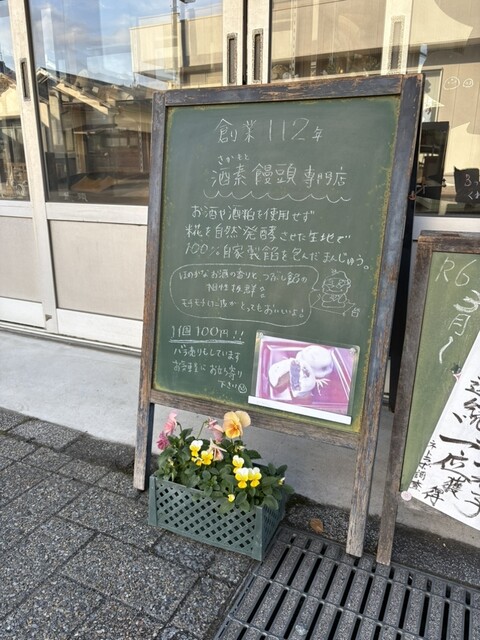 創業112年
さかもと
酒素饅頭専門店
お酒や酒粕を使用せず
糀を自然発酵させた生地で
100%自家製餡を包んだまんじゅう。
ほのかなお酒の香りとつぶし餡の
相性抜群!
モチモチした皮がとってもおいしいよ!
1個100円!!
バラ売りもしています
お気軽にお立ち寄り
下さい
R6
3月